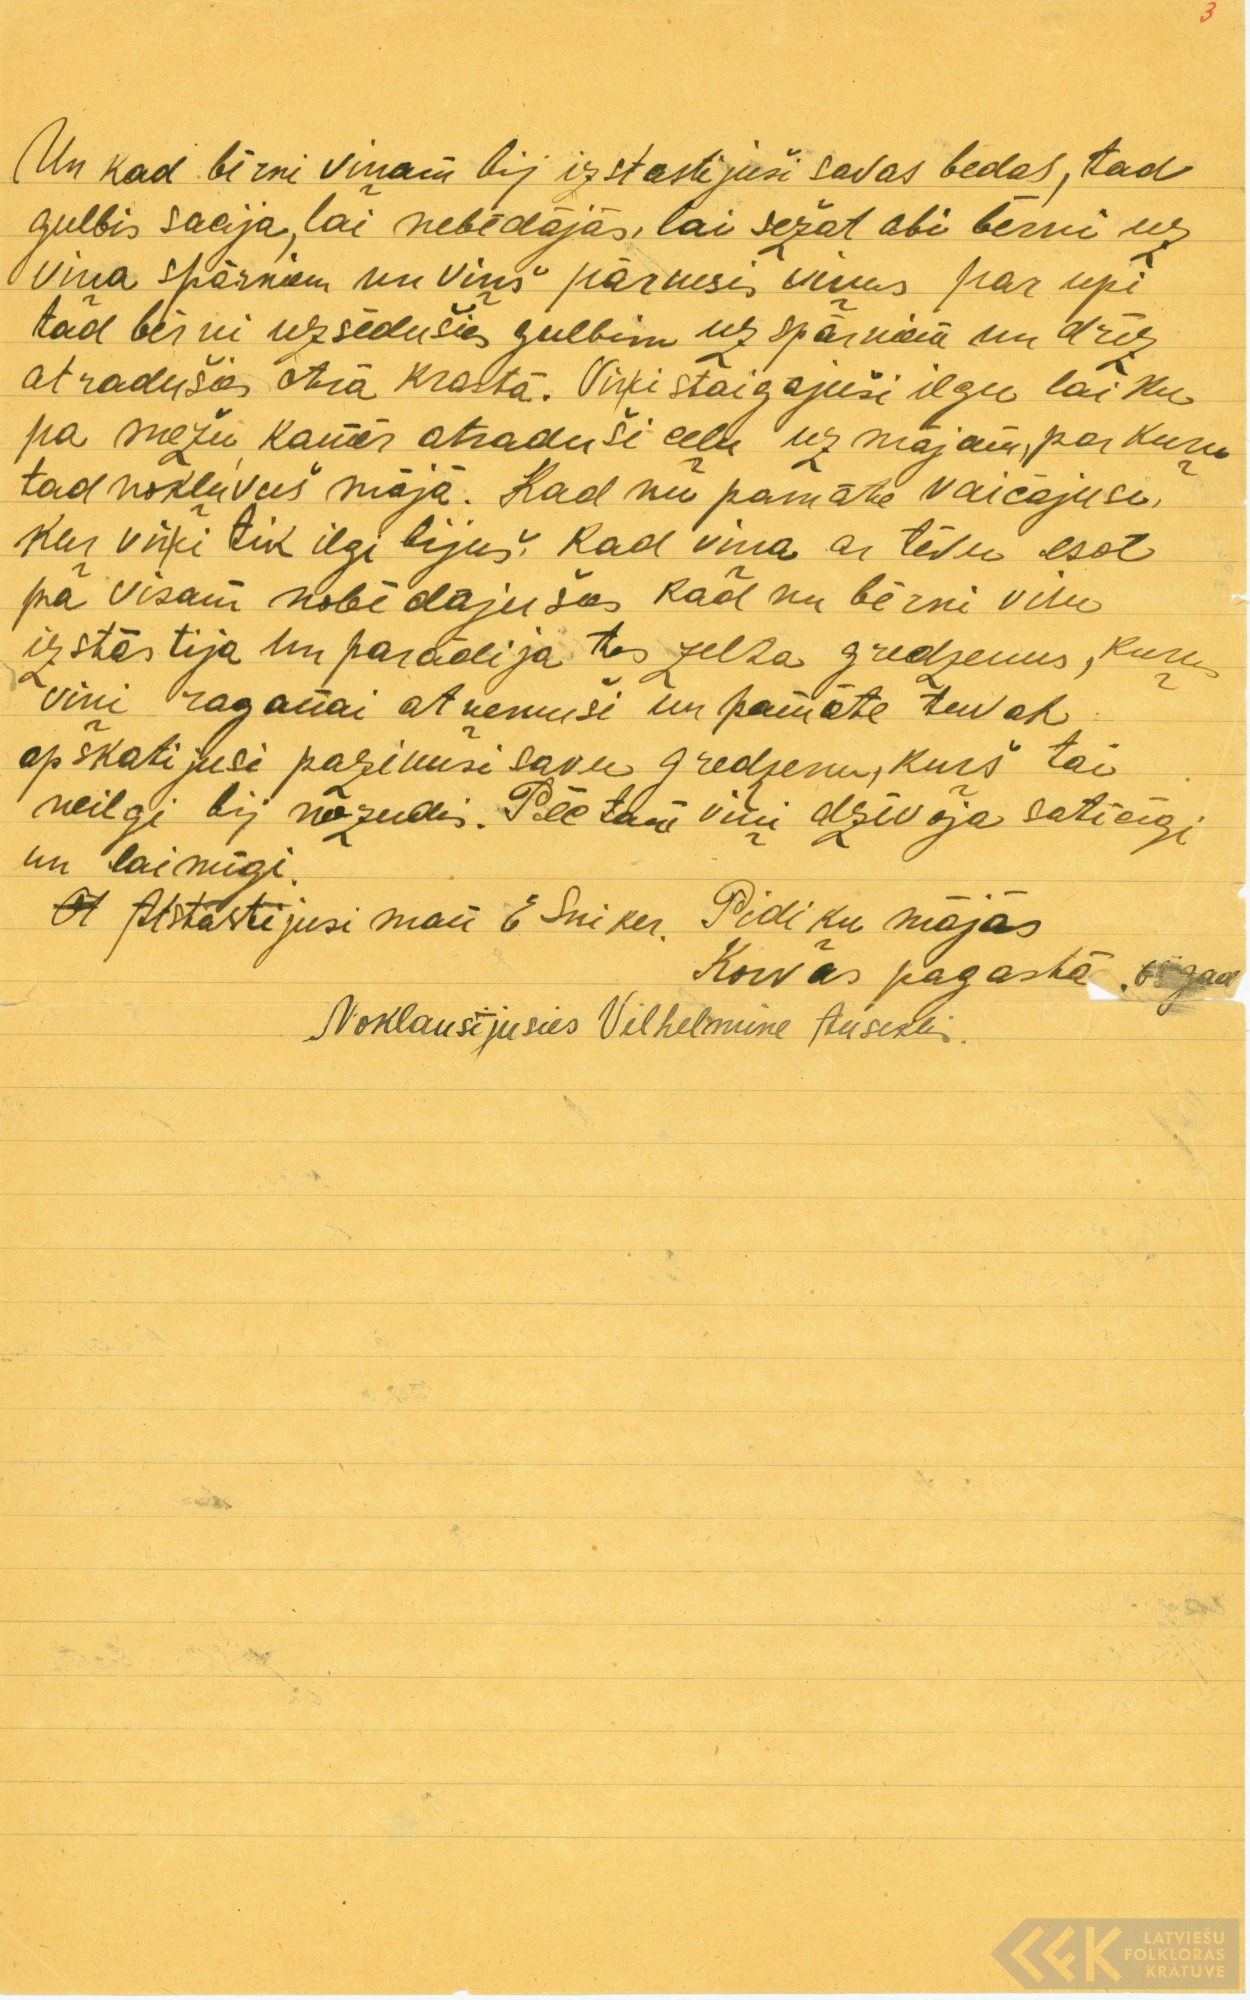 3
Un kad bērni viņam bij izstastijuši savas bedas, tad
gulbis sacija, lai nebēdājās, lai sežat abi bērni uz
viņa spārniem un viņš pārnesis viņus par upi
tad bērni uzsēdušies gulbim uz spārniem un drīz
atradušies otrā krastā. Viņi staigājuši ilgu laiku
pa mežu, kamēr atraduši ceļu uz mājām, par kuŗu
tad nokļuvuš mājā. Kad nu pamāte vaicājusi,
kur viņi tik ilgi bijuš. Kad viņa ar tēvu esot
pa visam nobēdajušies Kad nu bērni visu
izstāstija un parādija tos zelta gredzenus, kuŗus
viņi raganai atņemuši un pamāte tuvak
apškatijusi pazinusi savu gredzenu, kuŗš tai
neilgi bij nozudis. Pēc tam viņi dzīvoja saticīgi
un laimīgi.
Atstāstijusi man E Sniker. Pidiķu mājās
Kaŗvas pagastā gad
Noklausījusies Vilhelmine Auseklis.
LATVIEŠU
FOLKLORAS
KRĀTUVE